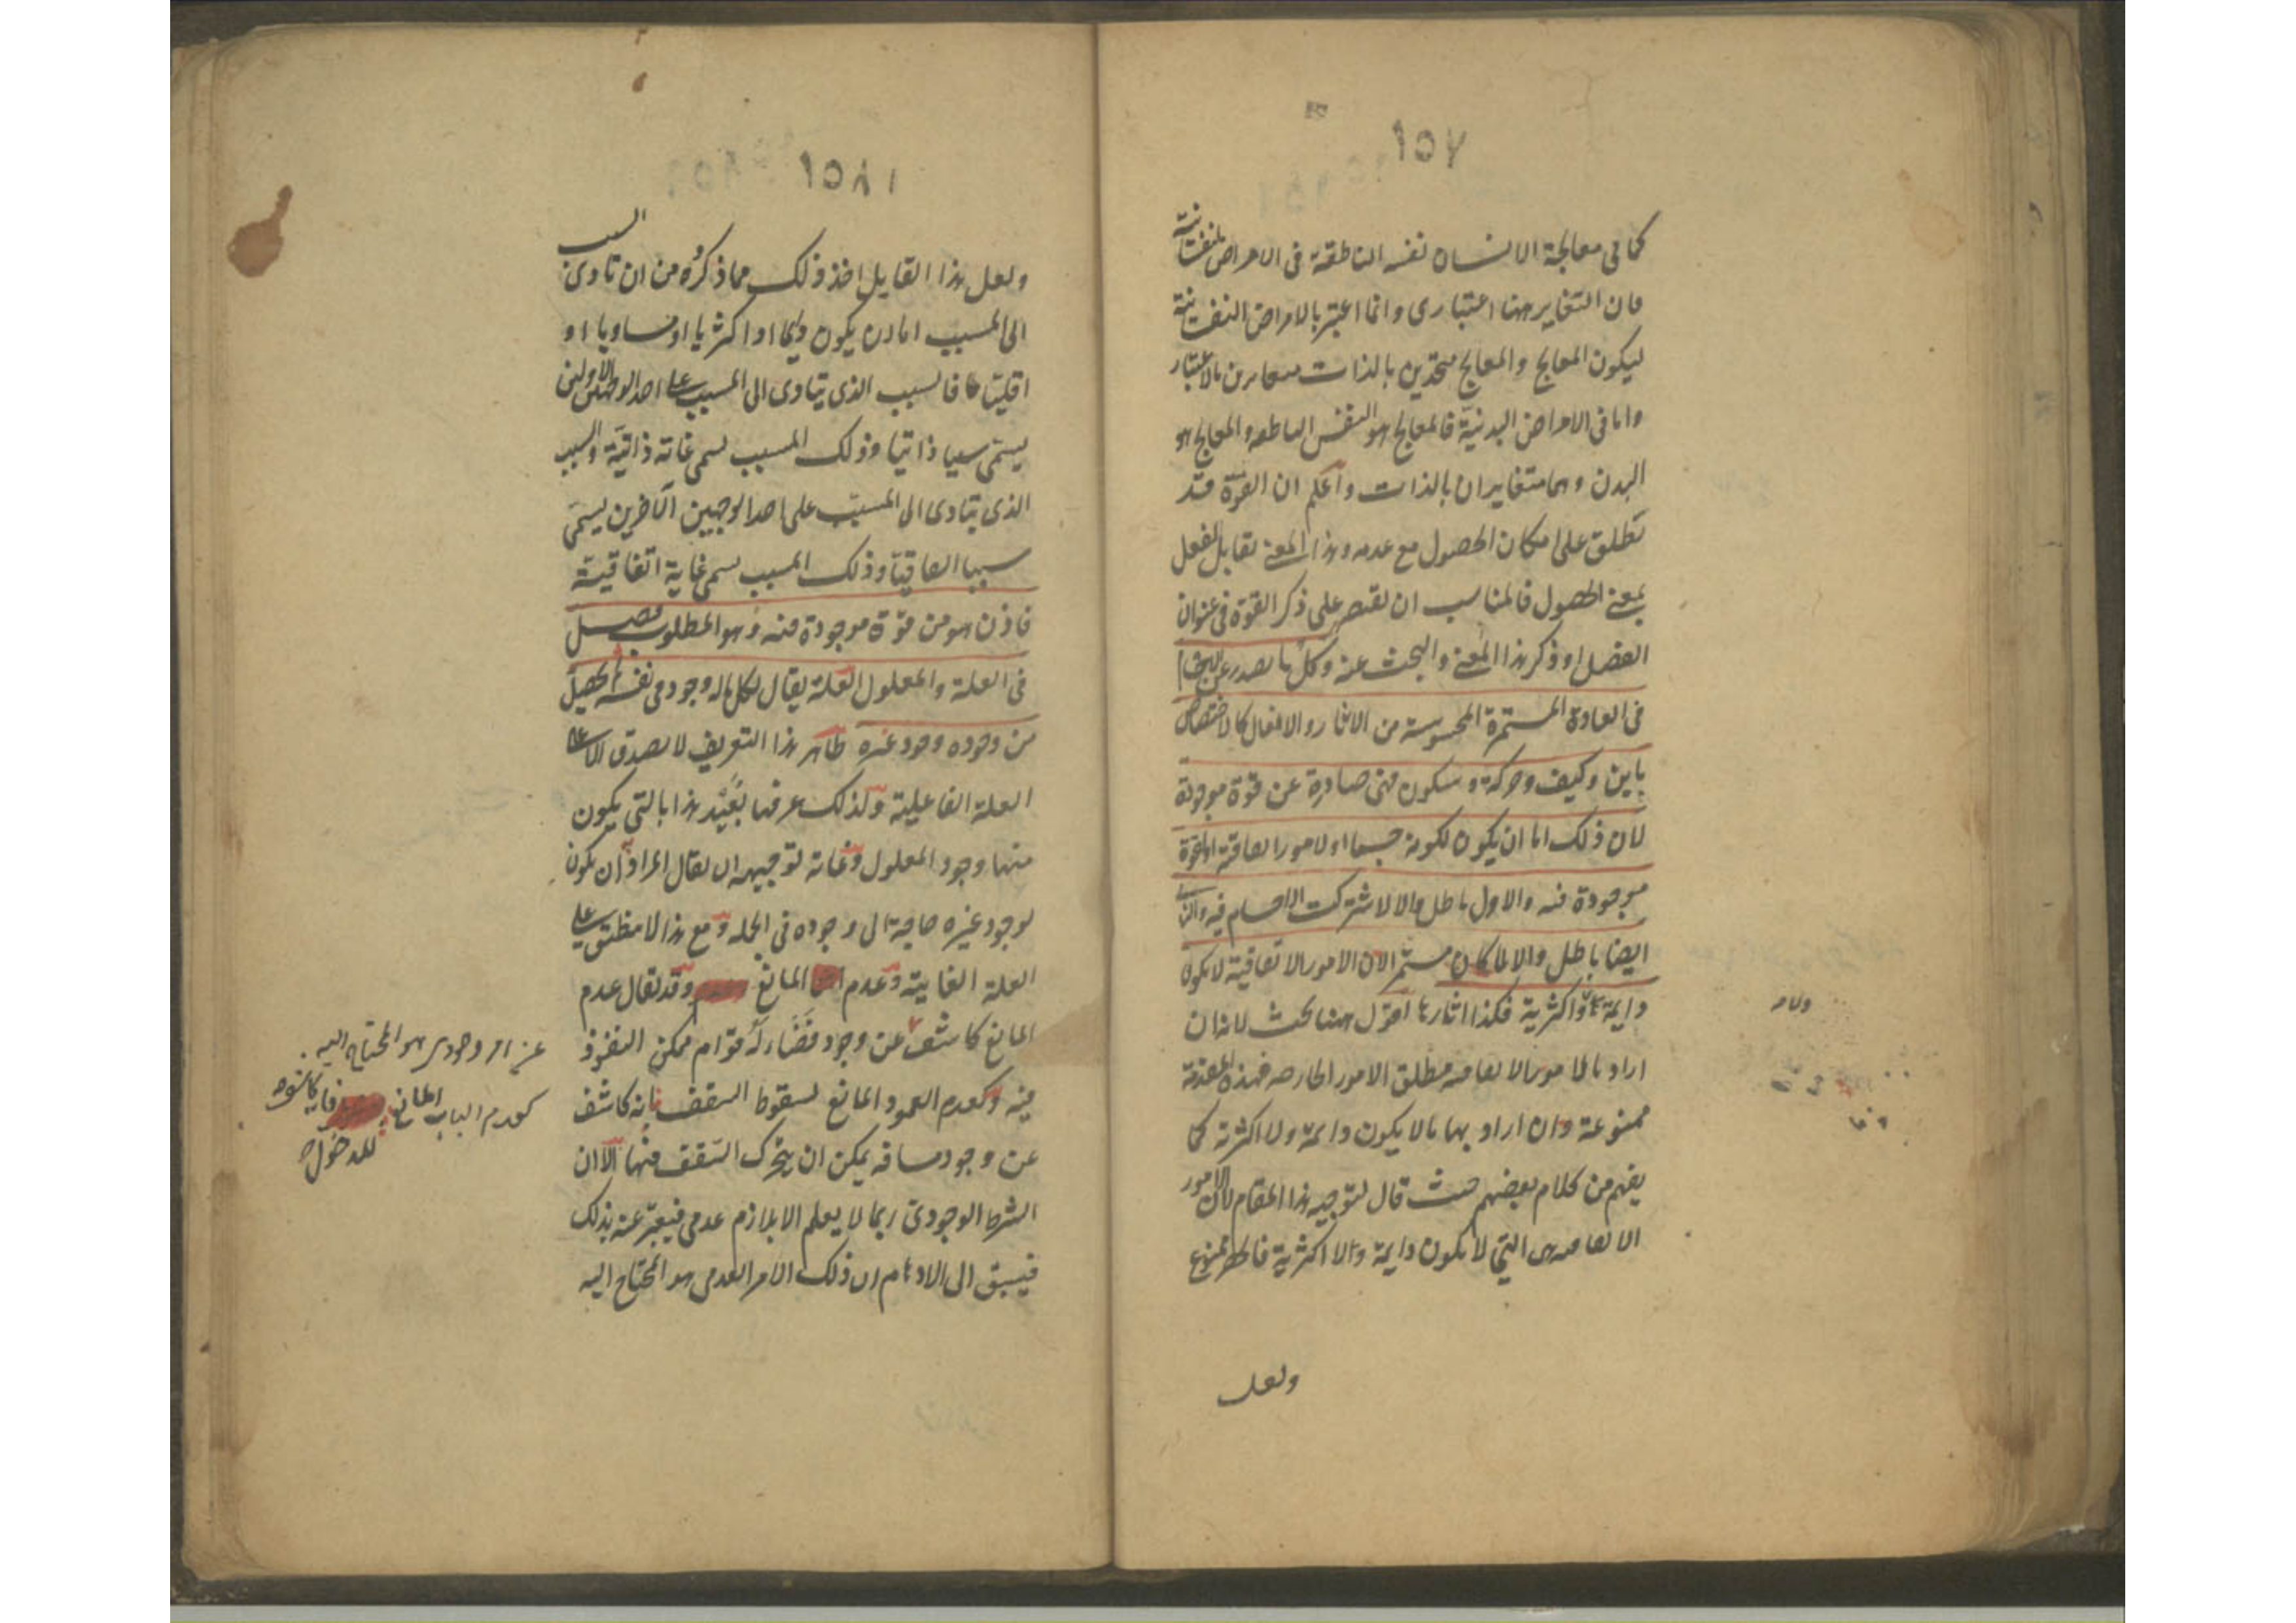 ١٥٧
كما في معالجة الانسان نفسه الناطقة في الامراض النفسانية
فان التغاير ههنا اعتباري وانما اعتبر بالامراض النفسانية
ليكون المعالج والمعالج متحدين بالذات متغايرين بالاعتبار
واما في الامراض البدنية فالمعالج هو النفس الناطقة والمعالج هو
البدن وهما متغايران بالذات واعلم ان القوة قد
تطلق على امكان الحصول مع عدمه وهذا المعنى تقابل الفعل
بمعنى الحصول فالمناسب ان يقتصر على ذكر القوة في عنوان
الفصل او ذكر هذا المعنى والبحث عنه وكل ما يصدر عن الاجسام
في العادة المستمرة المحسوسة من الاثار والافعال كالاختصاص
باين وكيف وحركة وسكون فهي صادرة عن قوة موجودة
لان ذلك اما ان يكون لكونه جسما او لامور اتفاقية او لقوة
موجودة فيه والاول باطل والا لاشتركت الاجسام فيه والثاني
ايضا باطل والا لما كان مستمر الان الامور الاتفاقية لا يكون
دايمة ولا اكثرية فكذا اثارها اقول ههنا بحث لانه ان
اراد بالامور الاتفاقية مطلق الامور الخارجة فهذه المقدمة
ممنوعة وان اراد بها ما لا يكون دايمة ولا اكثرية كما
يفهم من كلام بعضهم حيث قال لتوجيه هذا المقام لان الامور
الاتفاقية هي التي لا يكون دايمة ولا اكثرية فالحصر ممنوع
ولعل
١٥٨
ولعل هذا القايل اخذ ذلك مما ذكره من ان تادى السبب
الى المسبب اما ان يكون دايما او اكثريا او مساويا او
اقليا فالسبب الذي يتادى الى المسبب على احد الوجهين الاولين
يسمى سببا ذاتيا وذلك المسبب يسمى غاية ذاتية والسبب
الذي يتادى الى المسبب على احد الوجهين الاخرين يسمى
سببا اتفاقيا وذلك المسبب يسمى غاية اتفاقية
فاذن هو من قوة موجودة فيه وهو المطلوب فصل
في العلة والمعلول العلة يقال لكل ما له وجود في نفسه ثم يحصل
من وجوده وجود غيره ظاهر هذا التعريف لا يصدق الا على
العلة الفاعلية ولذلك عرفها بعيد هذا بالتي يكون
منها وجود المعلول وغاية توجيهه ان يقال المراد ان يكون
لوجود غيره حاجة الى وجوده في الجملة ومع هذا لا ينطبق على
العلة الغايية وعدم المانع وقد يقال عدم
المانع كاشف عن وجود فضاء له قوام ممكن النفوذ
فيه وكعدم العمود المانع لسقوط السقف فانه كاشف
عن وجود مسافة يمكن ان يتحرك السقف فيها الا ان
الشرط الوجودي ربما لا يعلم الا بلازم عدمي فيعبر عنه بذلك
فيسبق الى الاوهام ان ذلك الامر العدمي هو المحتاج اليه
عن امر وجودي هو المحتاج اليه
كعدم الباب المانع
للدخول